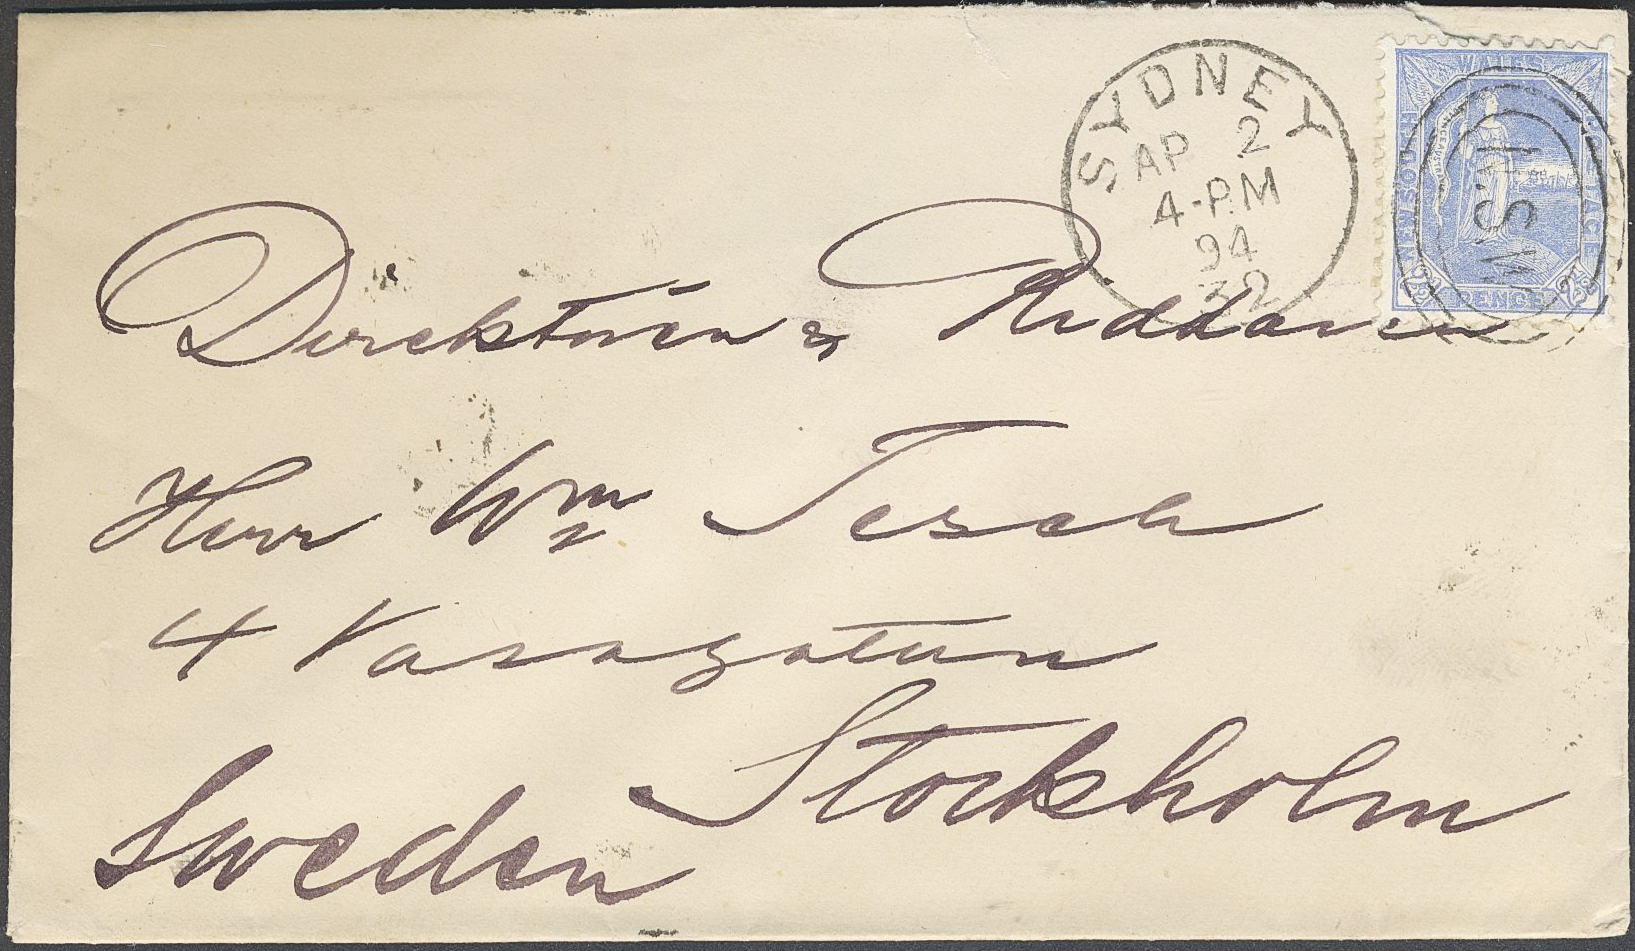 SYDNEY
AP 2
4-PM
94
32
NEW SOUTH WALES POSTAGE
2½ PENCE 2½
NSW
Direktören & Riddaren
Herr Wm Tesch
4 Vasagatan
Stockholm
Sweden